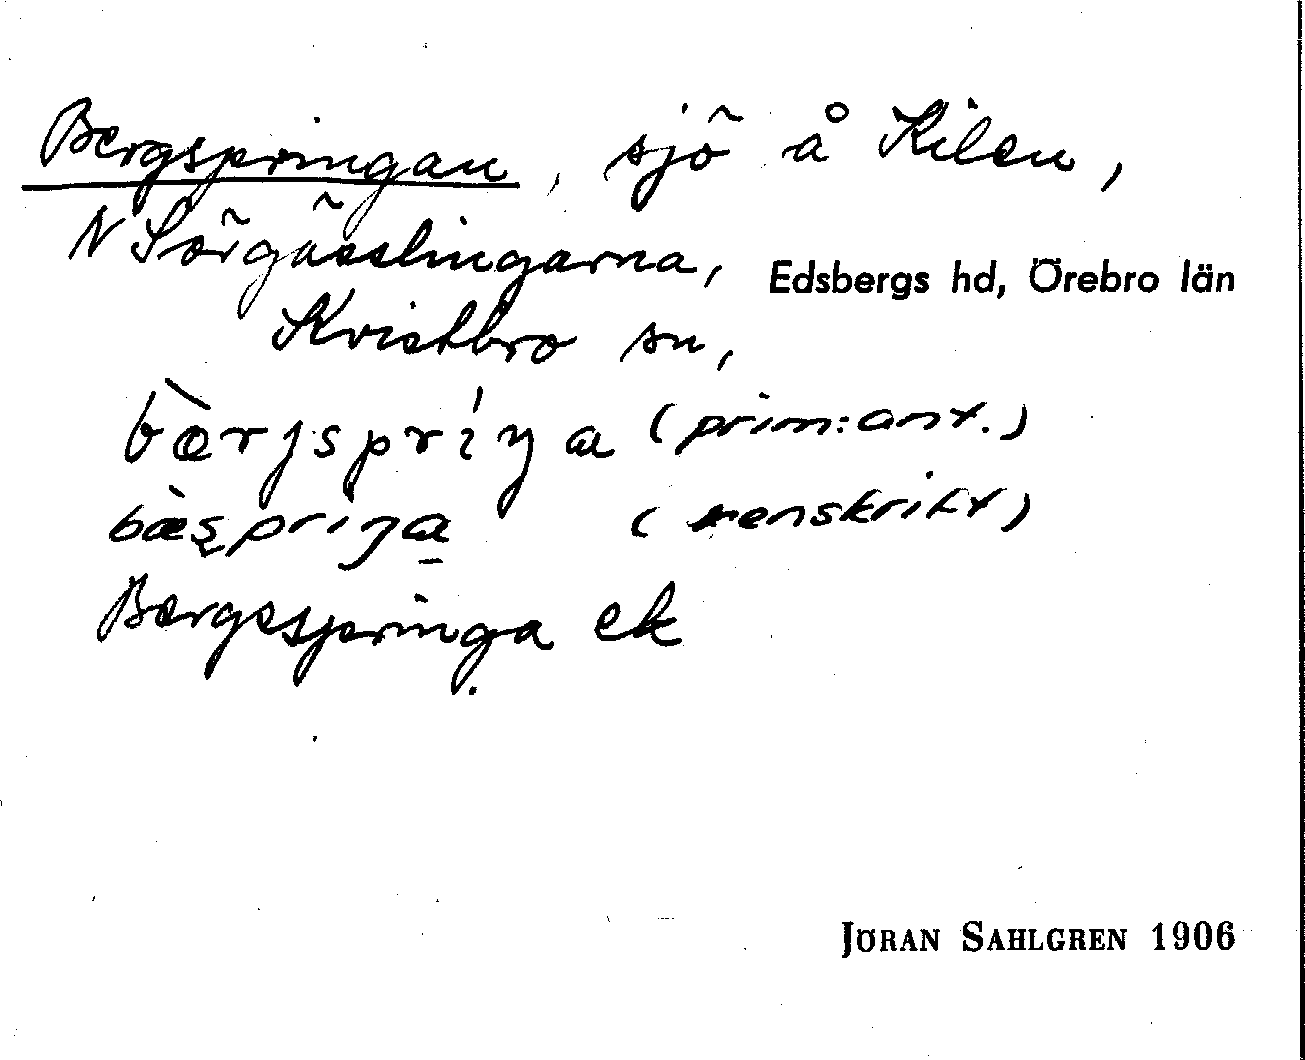 Bergspringan, sjö å Kilen,
N Sörgässlingarna, Edsbergs hd, Örebro län
Kvistbro sn,
bæ̀rjspríŋa (prim:ant.)
bæ̀şpriŋa̱ (renskrift)
Bergsspringa ek
JÖRAN SAHLGREN 1906